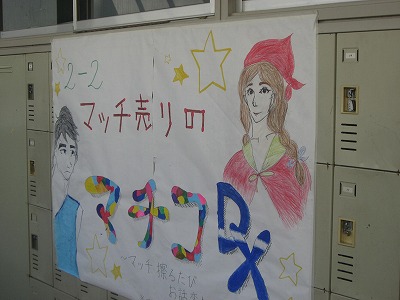 2-2
マッチ売りの
マチコDX
～マッチ擦るたび